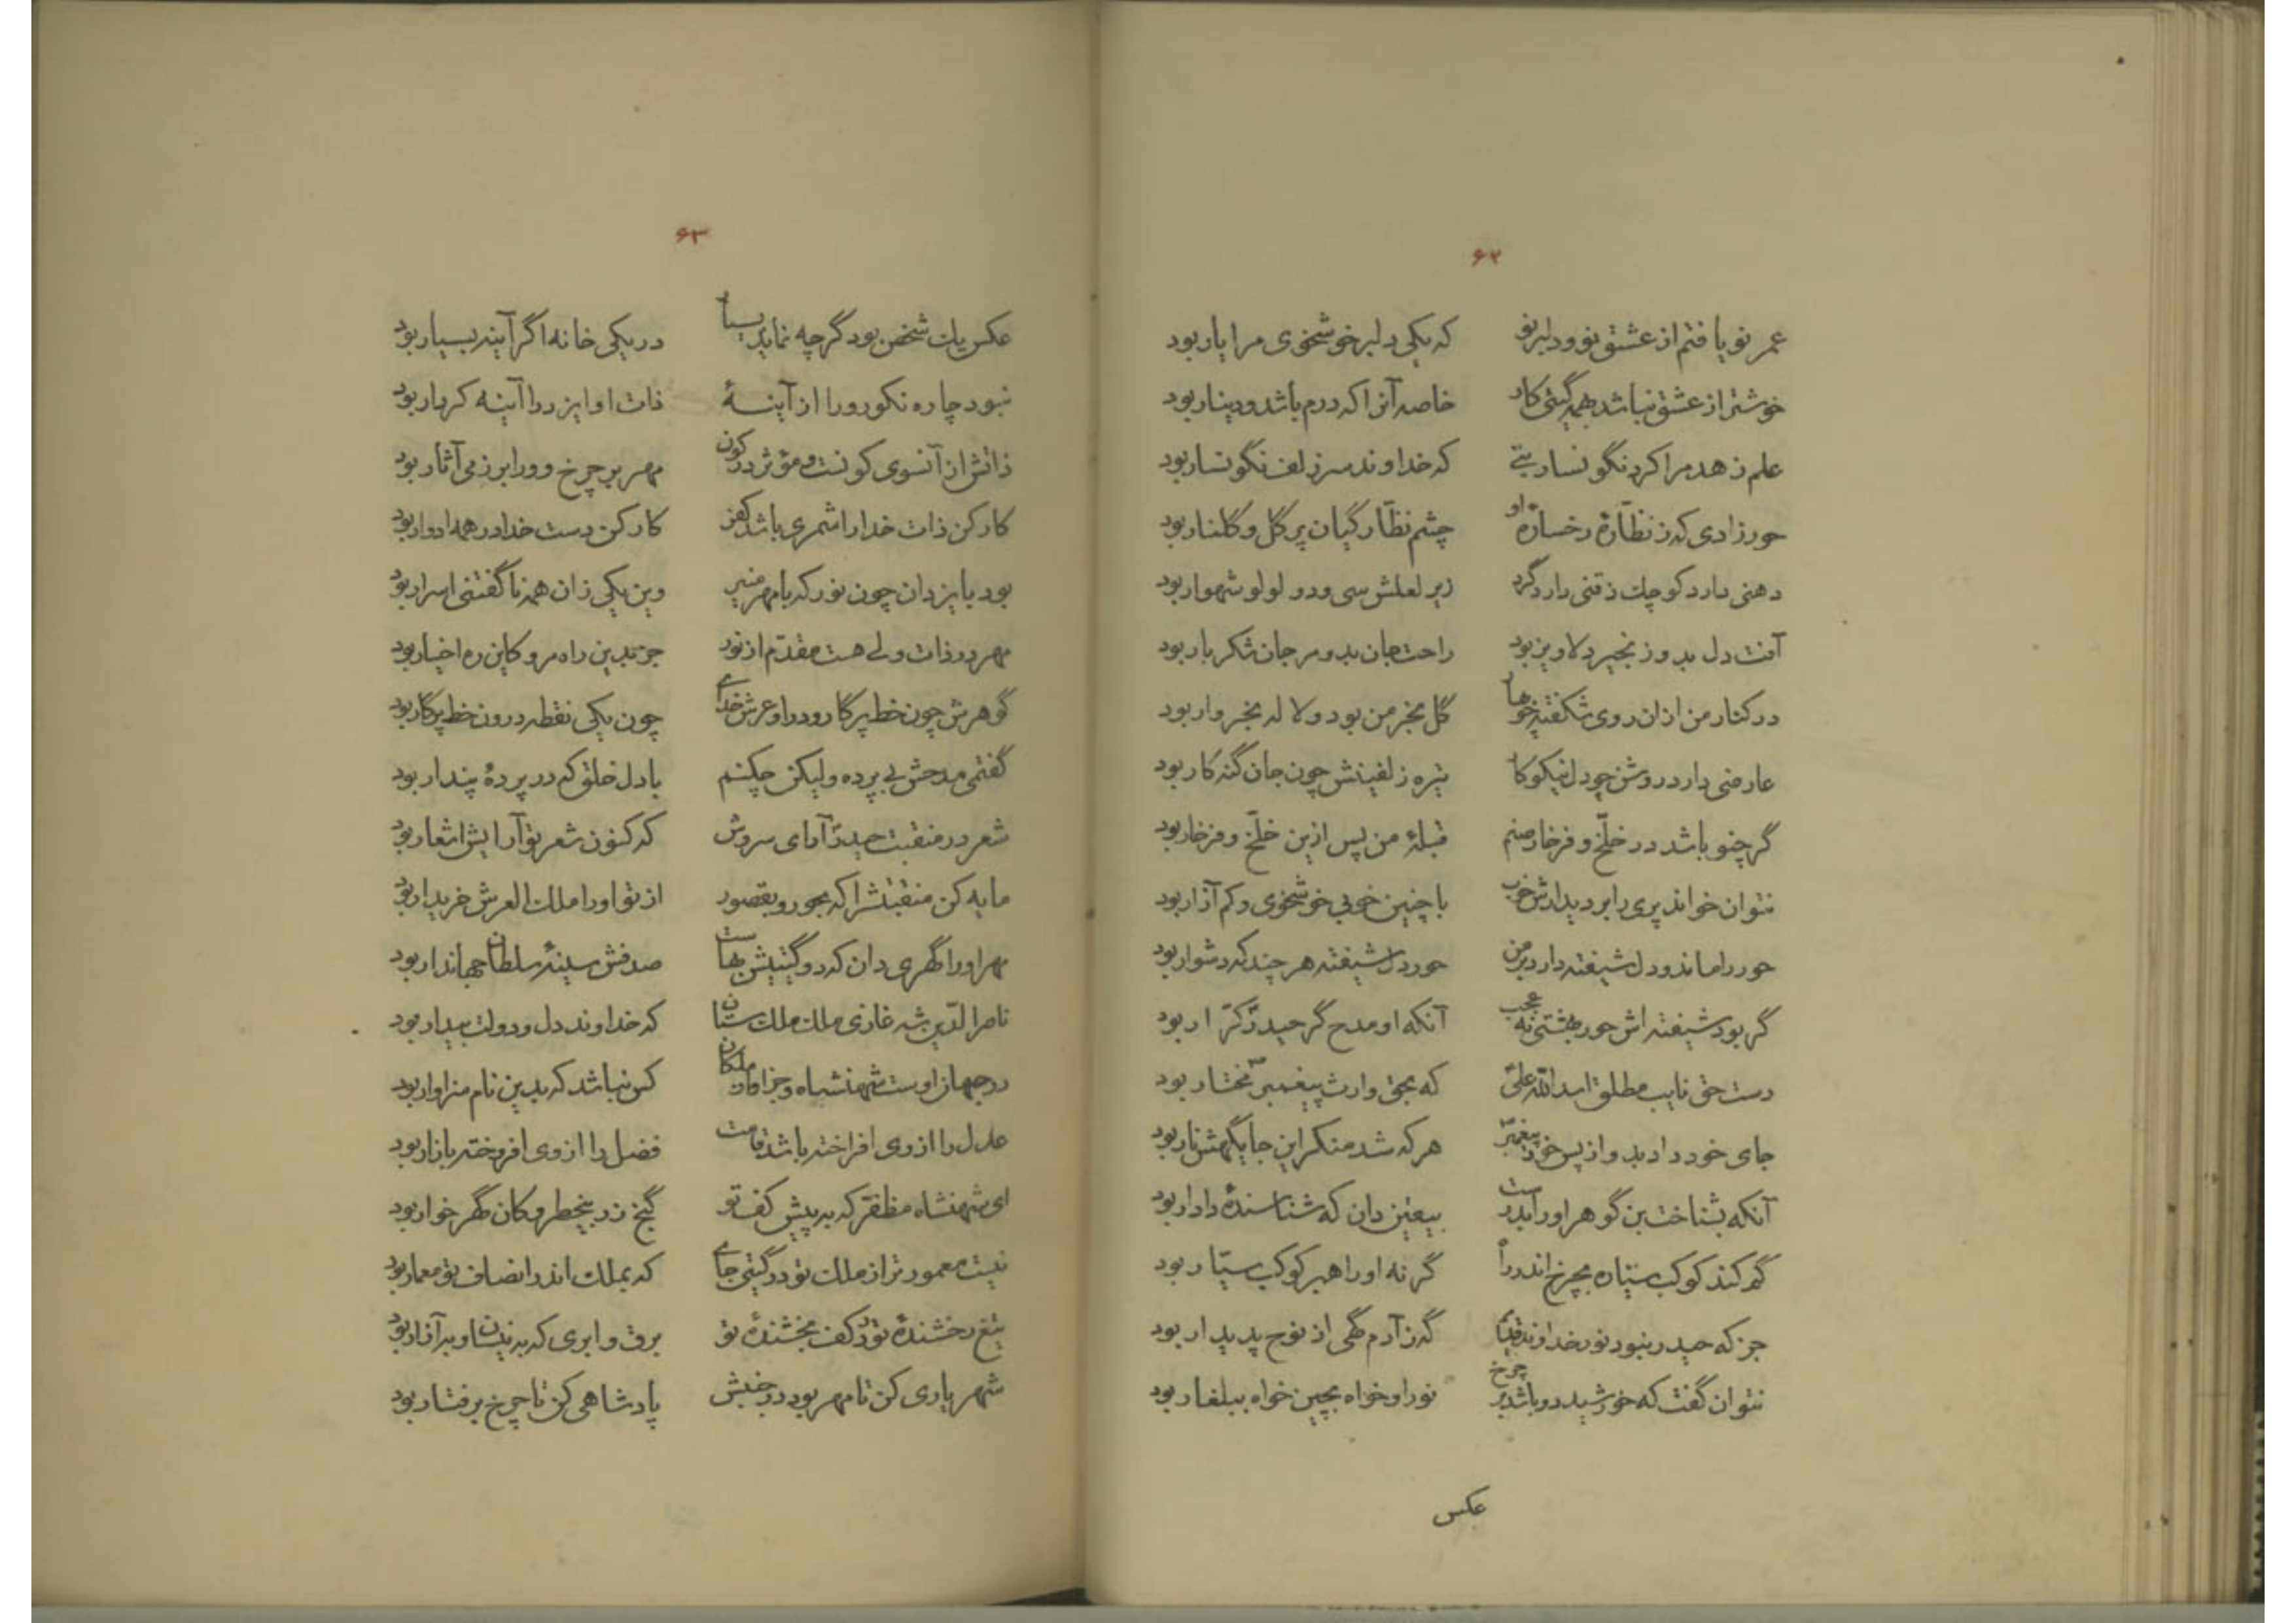 ۶۲
عمر نو یافتم از عشق نو و دلبر نو که یکی دلبر خوشخوی مرا یار بود
خوشتر از عشق نباشد بهمه گیتی کار خاصه آنرا که درم باشد و دینار بود
علم زهد مرا کرد نگونسار بتی که خداوند سر زلف نگونسار بود
حورزادی که ز نظّارهٔ رخسارهٔ او چشم نظّارگیان پر گل و گلنار بود
دهنی دارد کوچک ذقنی دارد گرد زیر لعلش سی و دو لولو شهوار بود
آفت دل بدو زنجیر دلاویز بود راحت جان بدو مرجان شکربار بود
در کنار من از ان روی شکفته چو بهار گل بخرمن بود و لاله بخروار بود
عارضی دارد روشن چو دل نیکوکار تیره زلفینش چون جان گنه کار بود
گر چنو باشد در خلّخ و فرخار صنم قبلهٔ من پس ازین خلّخ و فرخار بود
نتوان خواند پری را بر دیدارش خوب با چنین خوبی خوشخوی و کم آزار بود
حور را ماند و دل شیفته دارد بر من حور دل شیفته هر چند که دشوار بود
گر بود شیفته اش حور بهشتی نه عجب آنکه او مدح گر حیدر کرّار بود
دست حق نایب مطلق اسد اللّه علی که بحق وارث پیغمبر مختار بود
جای خود داد بدو از پس خود پیغمبر هر که شد منکر این جایگهش نار بود
آنکه بشناخت بن گوهر او را بدرست بیقین دان که شناسندهٔ دادار بود
گم کند کوکب سیّاره بچرخ اندر راه گر نه او راهبر کوکب سیّار بود
جز که حیدر نبود نور خداوند قدیم گه ز آدم گهی از نوح پدیدار بود
نتوان گفت که خورشید دو باشد بر چرخ نور او خواه بچین خواه ببلغار بود
عکس
۶۳
عکس یک شخص بود گرچه نماید بسیار در یکی خانه اگر آینه بسیار بود
نبود چاره نکورو را از آینهٔ ذات او ایزد را آینه کردار بود
ذاتش از آنسوی کونست و مؤثر در کون مهر بر چرخ و ورا بر زمی آثار بود
کارکن ذات خدا را شمری باشد کفر کارکن دست خدا در همه ادوار بود
بود با یزدان چون نور که با مهر منیر وین یکی زان همه ناگفتنی اسرار بود
مهر در ذات ولی هست مقدّم از نور جز بدین راه مرو کاین ره اخیار بود
گوهرش چون خط پرگار و درو عرش خدای چون یکی نقطه درون خط پرگار بود
گفتمی مدحش بی پرده ولیکن چکنم با دل خلق که در پردهٔ پندار بود
شعر در منقبت حیدر آرای سروش که کنون شعر تو آرایش اشعار بود
مایه کن منقبتش را که بحور و بقصور از تو او را ملک العرش خریدار بود
مهر او را گهری دان که دو گیتیش بهاست صدفش سینهٔ سلطان جهاندار بود
ناصر الدّین شه غازی ملک ملک ستان که خداوند دل و دولت بیدار بود
در جهان اوست شهنشاه و جز او از ملکان کس نباشد که بدین نام سزاوار بود
عدل را از وی افراخته باشد قامت فضل را از وی افروخته بازار بود
ای شهنشاه مظفّر که به پیش کف تو گنج زر بیخطر و کان گهر خوار بود
نیست معمورتر از ملک تو در گیتی جای که بملک اندر انصاف تو معمار بود
تیغ رخشندهٔ تو در کف بخشندهٔ تو برق و ابری که به نیسان و به آذار بود
شهریاری کن تا مهر بود در جنبش پادشاهی کن تا چرخ برفتار بود